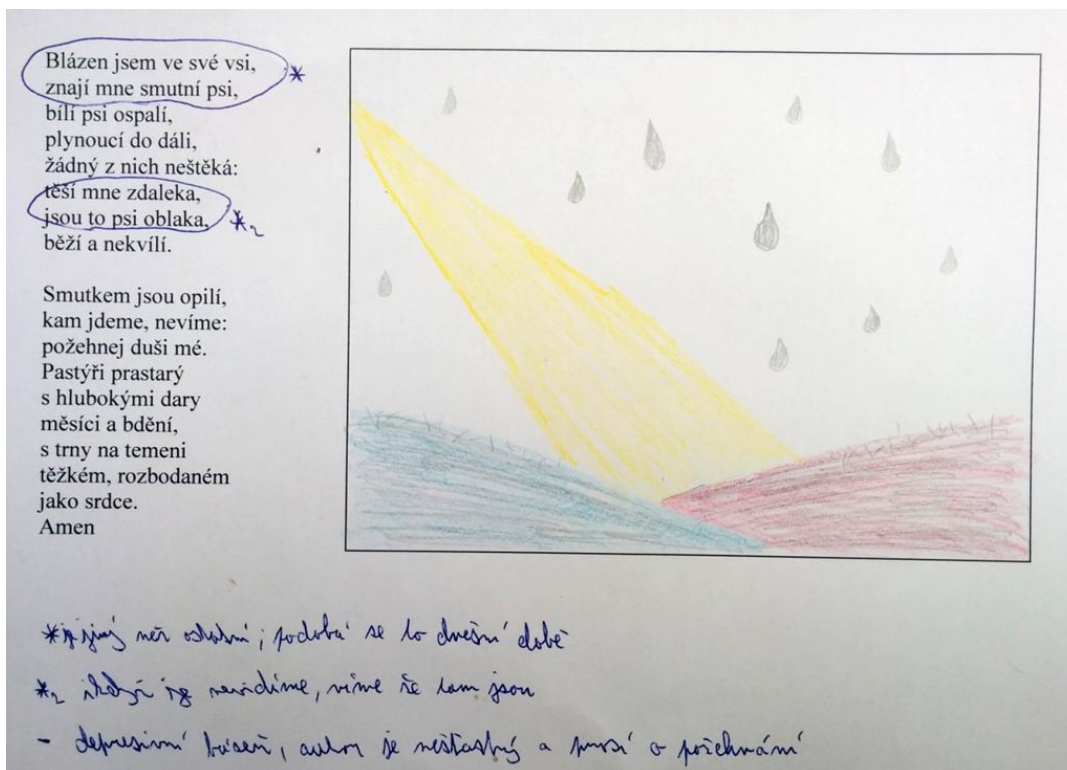 Blázen jsem ve své vsi,
znají mne smutní psi,
bílí psi ospalí,
plynoucí do dáli,
žádný z nich neštěká:
těší mne zdaleka,
jsou to psi oblaka,
běží a nekvílí.
Smutkem jsou opilí,
kam jdeme, nevíme:
požehnej duši mé.
Pastýři prastarý
s hlubokými dary
měsíci a bdění,
s trny na temeni
těžkém, rozbodaném
jako srdce.
Amen
* je jiný než ostatní; podobá se to dnešní době
*2 i když je nevidíme, víme že tam jsou
- depresivní báseň, autor je nešťastný a prosí o požehnání